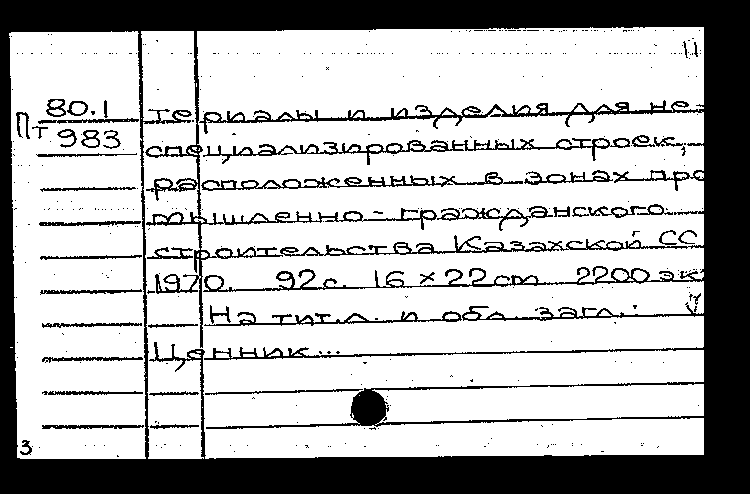 11
80.1 териалы и изделия для не-
Пт 983 специализированных строек,
расположенных в зонах про
мышленно-гражданского
строительства Казахской СС
1970. 92с. 16×22cm 2200 эк
На тит.л. и обл. загл.:
Ценник...
3